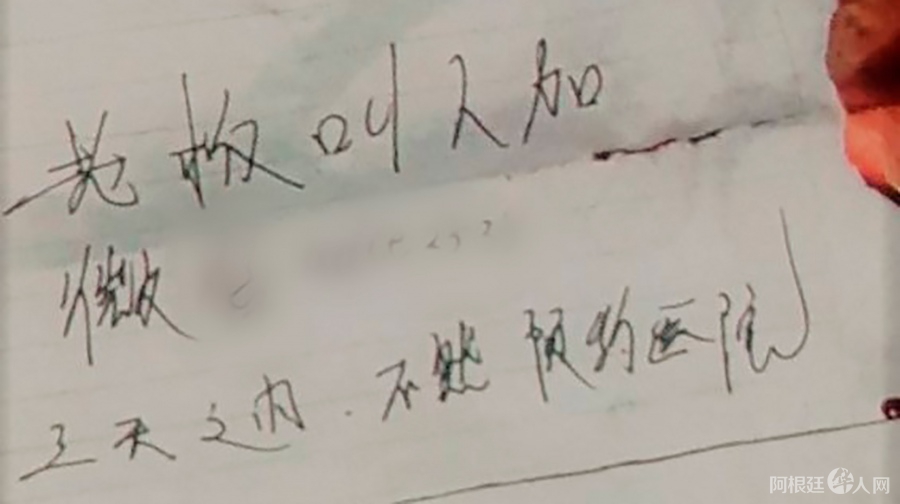 老板叫人加
微
三天之内.不然预约医院
阿根廷华人网